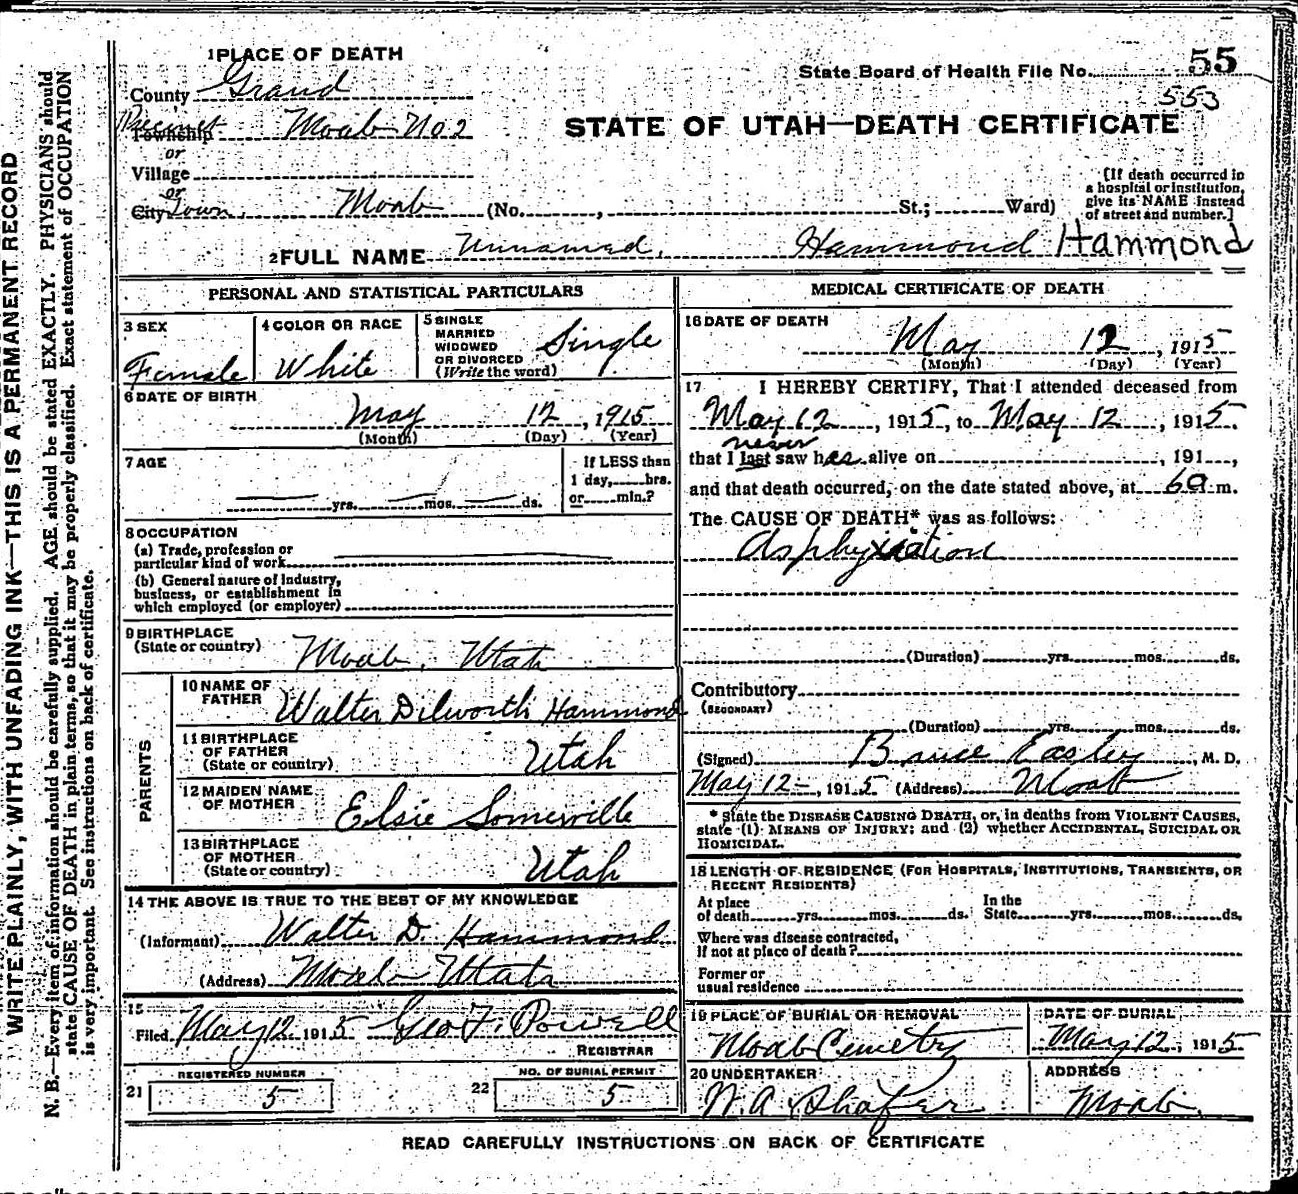 1 PLACE OF DEATH
County Grand
Precinct Township Moab No 2
or
Village
or
City Town Moab (No. , St.; Ward)
State Board of Health File No. 55
553
STATE OF UTAH—DEATH CERTIFICATE
[If death occurred in
a hospital or institution,
give its NAME instead
of street and number.]
2 FULL NAME Unnamed, Hammond Hammond
PERSONAL AND STATISTICAL PARTICULARS
3 SEX
Female
4 COLOR OR RACE
White
5 SINGLE
MARRIED
WIDOWED
OR DIVORCED
(Write the word)
Single
6 DATE OF BIRTH
May 12, 1915
(Month) (Day) (Year)
7 AGE
yrs. mos. ds.
If LESS than
1 day, hrs.
or min.?
8 OCCUPATION
(a) Trade, profession or
particular kind of work
(b) General nature of Industry,
business, or establishment in
which employed (or employer)
9 BIRTHPLACE
(State or country)
Moab, Utah
PARENTS
10 NAME OF
FATHER
Walter Dilworth Hammond
11 BIRTHPLACE
OF FATHER
(State or country)
Utah
12 MAIDEN NAME
OF MOTHER
Elsie Somerville
13 BIRTHPLACE
OF MOTHER
(State or country)
Utah
14 THE ABOVE IS TRUE TO THE BEST OF MY KNOWLEDGE
(Informant) Walter D. Hammond
(Address) Moab Utah
15
Filed May 12 1915 Geo F. Powell
REGISTRAR
21 REGISTERED NUMBER
5
22 NO. OF BURIAL PERMIT
5
MEDICAL CERTIFICATE OF DEATH
16 DATE OF DEATH
May 12, 1915
(Month) (Day) (Year)
17 I HEREBY CERTIFY, That I attended deceased from
May 12, 1915, to May 12, 1915.
never
that I last saw her alive on , 191 ,
and that death occurred, on the date stated above, at 6 a m.
The CAUSE OF DEATH* was as follows:
Asphyxiation
(Duration) yrs. mos. ds.
Contributory
(SECONDARY)
(Duration) yrs. mos. ds.
(Signed) Bruce Easley, M. D.
May 12-, 1915 (Address) Moab
* State the DISEASE CAUSING DEATH, or, in deaths from VIOLENT CAUSES,
state (1) MEANS OF INJURY; and (2) whether ACCIDENTAL, SUICIDAL OR
HOMICIDAL.
18 LENGTH OF RESIDENCE (FOR HOSPITALS, INSTITUTIONS, TRANSIENTS, OR
RECENT RESIDENTS)
At place
of death yrs. mos. ds.
In the
State yrs. mos. ds.
Where was disease contracted,
if not at place of death?
Former or
usual residence
19 PLACE OF BURIAL OR REMOVAL
Moab Cemetry
DATE OF BURIAL
May 12, 1915
20 UNDERTAKER
W. A. Shafer
ADDRESS
Moab.
READ CAREFULLY INSTRUCTIONS ON BACK OF CERTIFICATE
WRITE PLAINLY, WITH UNFADING INK—THIS IS A PERMANENT RECORD
N. B.—Every item of information should be carefully supplied. AGE should be stated EXACTLY. PHYSICIANS should
state CAUSE OF DEATH in plain terms, so that it may be properly classified. Exact statement of OCCUPATION
is very important. See instructions on back of certificate.